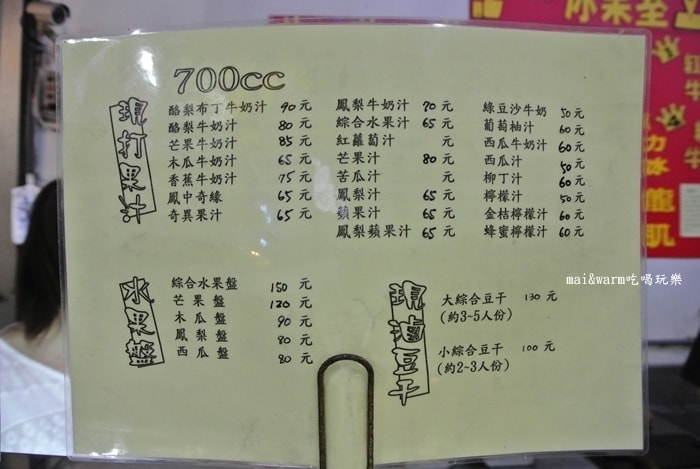 700cc
現打果汁
酪梨布丁牛奶汁 90元
酪梨牛奶汁 80元
芒果牛奶汁 85元
木瓜牛奶汁 65元
香蕉牛奶汁 75元
鳳中奇緣 65元
奇異果汁 65元
鳳梨牛奶汁 70元
綜合水果汁 65元
紅蘿蔔汁 元
芒果汁 80元
苦瓜汁 元
鳳梨汁 65元
蘋果汁 65元
鳳梨蘋果汁 65元
綠豆沙牛奶 50元
葡萄柚汁 60元
西瓜牛奶汁 60元
西瓜汁 50元
柳丁汁 60元
檸檬汁 50元
金桔檸檬汁 60元
蜂蜜檸檬汁 60元
水果盤
綜合水果盤 150元
芒果盤 120元
木瓜盤 90元
鳳梨盤 80元
西瓜盤 80元
現滷豆干
大綜合豆干 130元
(約3~5人份)
小綜合豆干 100元
(約2~3人份)
mai&warm吃喝玩樂